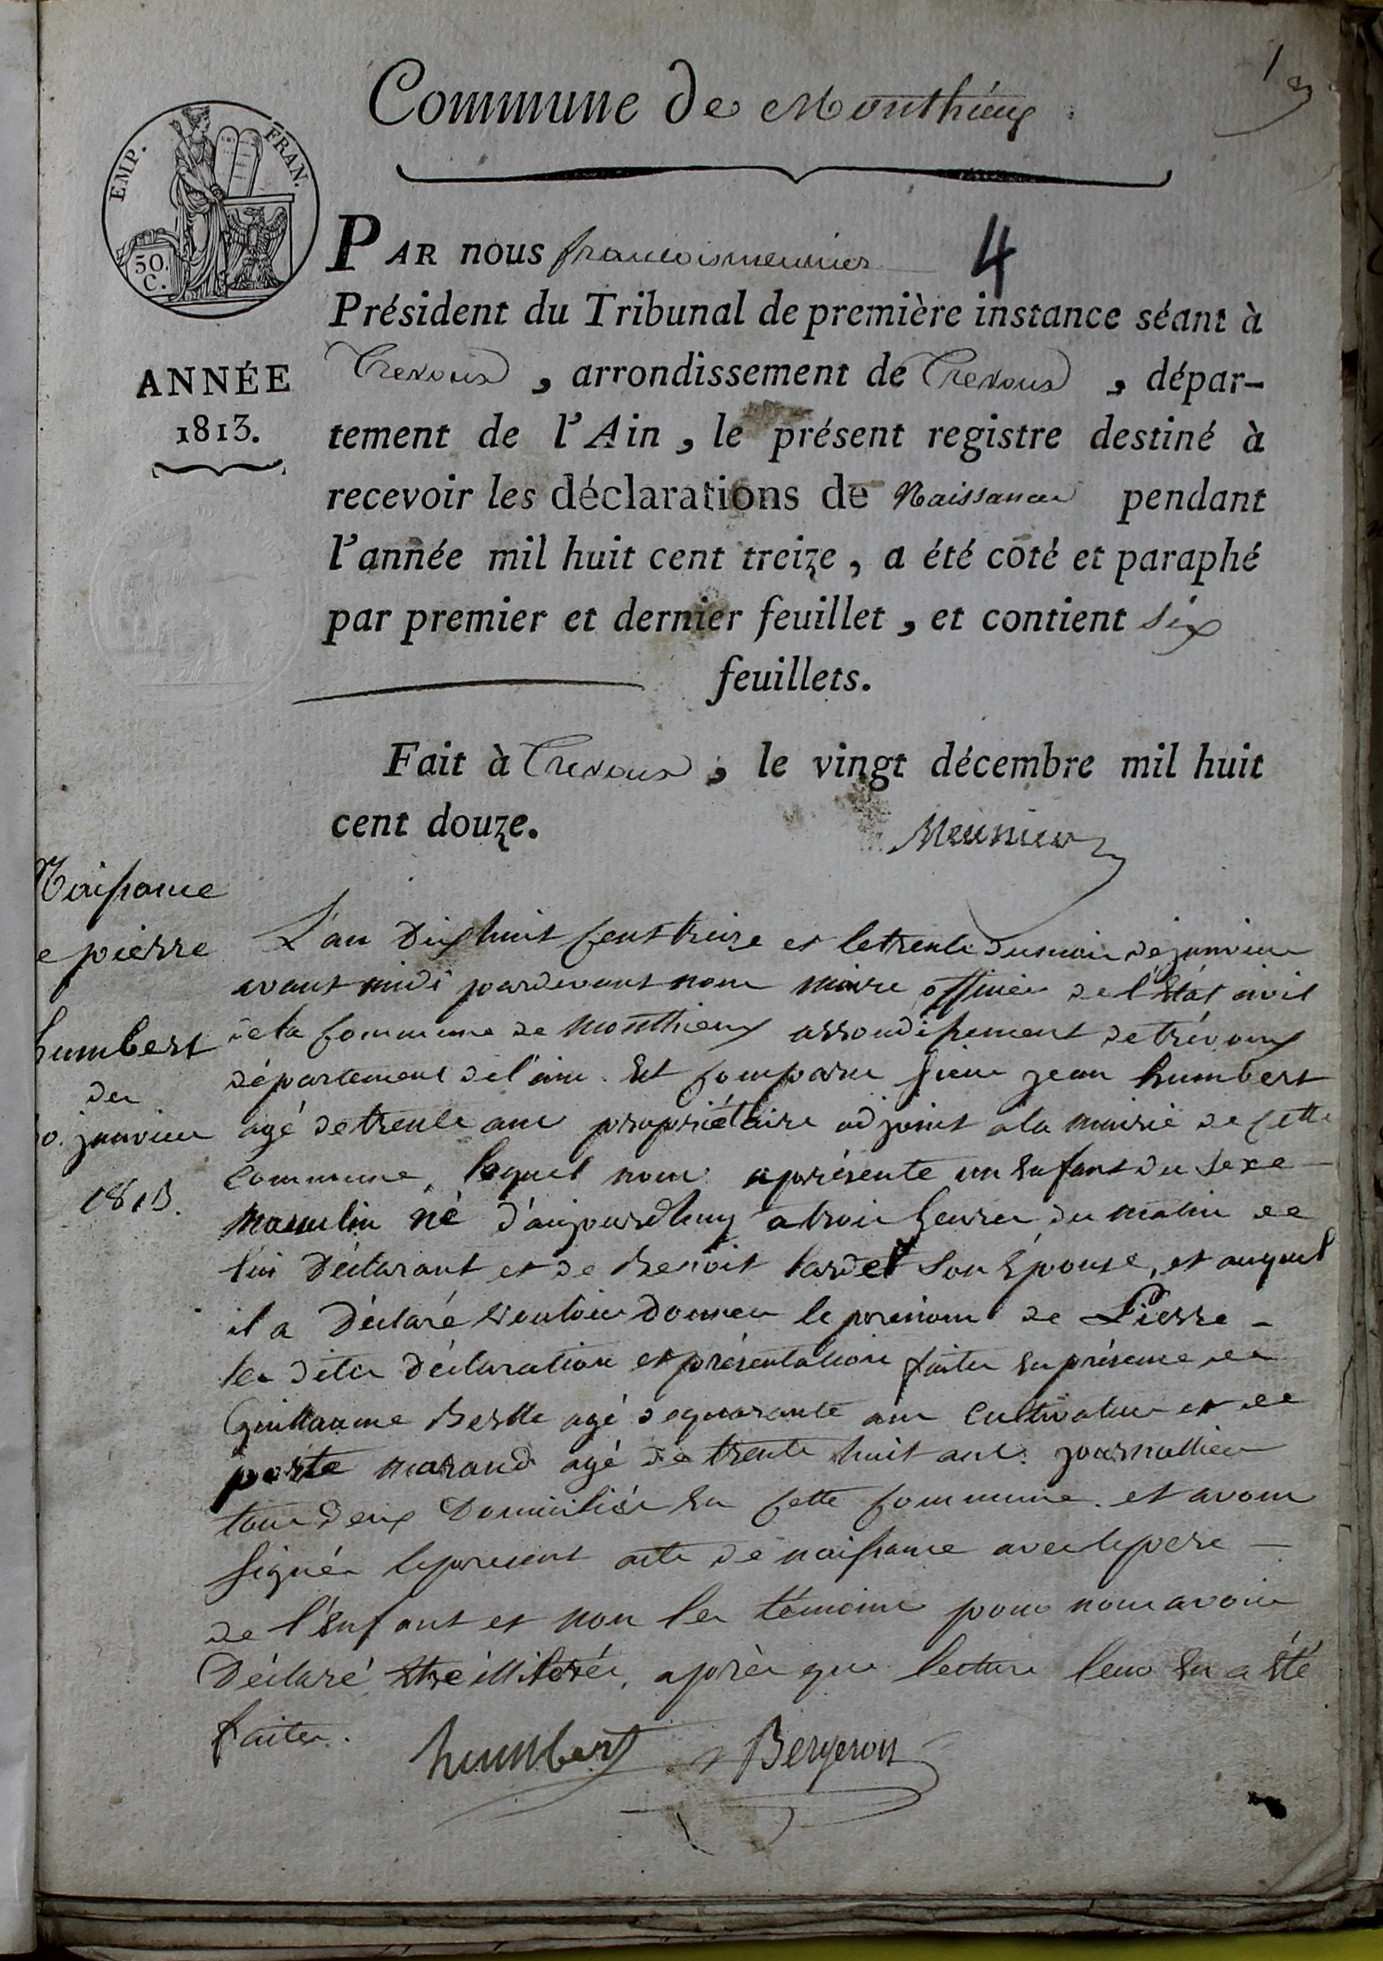 1
Commune de Monthieux
EMP. FRAN.
50. C.
4
PAR nous francois meunier
Président du Tribunal de première instance séant à
Trevoux, arrondissement de Trevoux, dépar-
ANNÉE
1813.
tement de l'Ain, le présent registre destiné à
recevoir les déclarations de Naissances pendant
l'année mil huit cent treize, a été coté et paraphé
par premier et dernier feuillet, et contient six
feuillets.
Fait à Trevoux, le vingt décembre mil huit
cent douze.
Meunier
Naissance
e pierre
humbert
du
0. janvier
1813.
L'an Dix huit Cent treize et le trente du mois de janvier
avant midi pardevant nous maire officier de l'Etat civil
de la Commune de Monthieux arrondissement de trévoux
département de l'ain. Est Comparu Sieur jean humbert
agé de trente ans propriétaire adjoint a la mairie de Cette
Commune, lequel nous a présenté un Enfant du Sexe
Masculin né d'aujourdhuy a trois heures du matin de
lui Déclarant et de Benoit tardet Son Epouse, et auquel
il a Déclaré vouloir Donner le prénom de Pierre
les dites déclaration et présentation faites En présence de
Guillaume Berlle agé de quarante ans Cultivateur et de
marand agé de trente huit ans journallier
tous deux Domiciliés En Cette Commune. et avons
Signés le present acte de naissance avec le pere
de l'Enfant et non les témoins pour nous avoir
Déclaré Etre illiterés, après que lecture leur En a Eté
faites.
humbert Bergeron